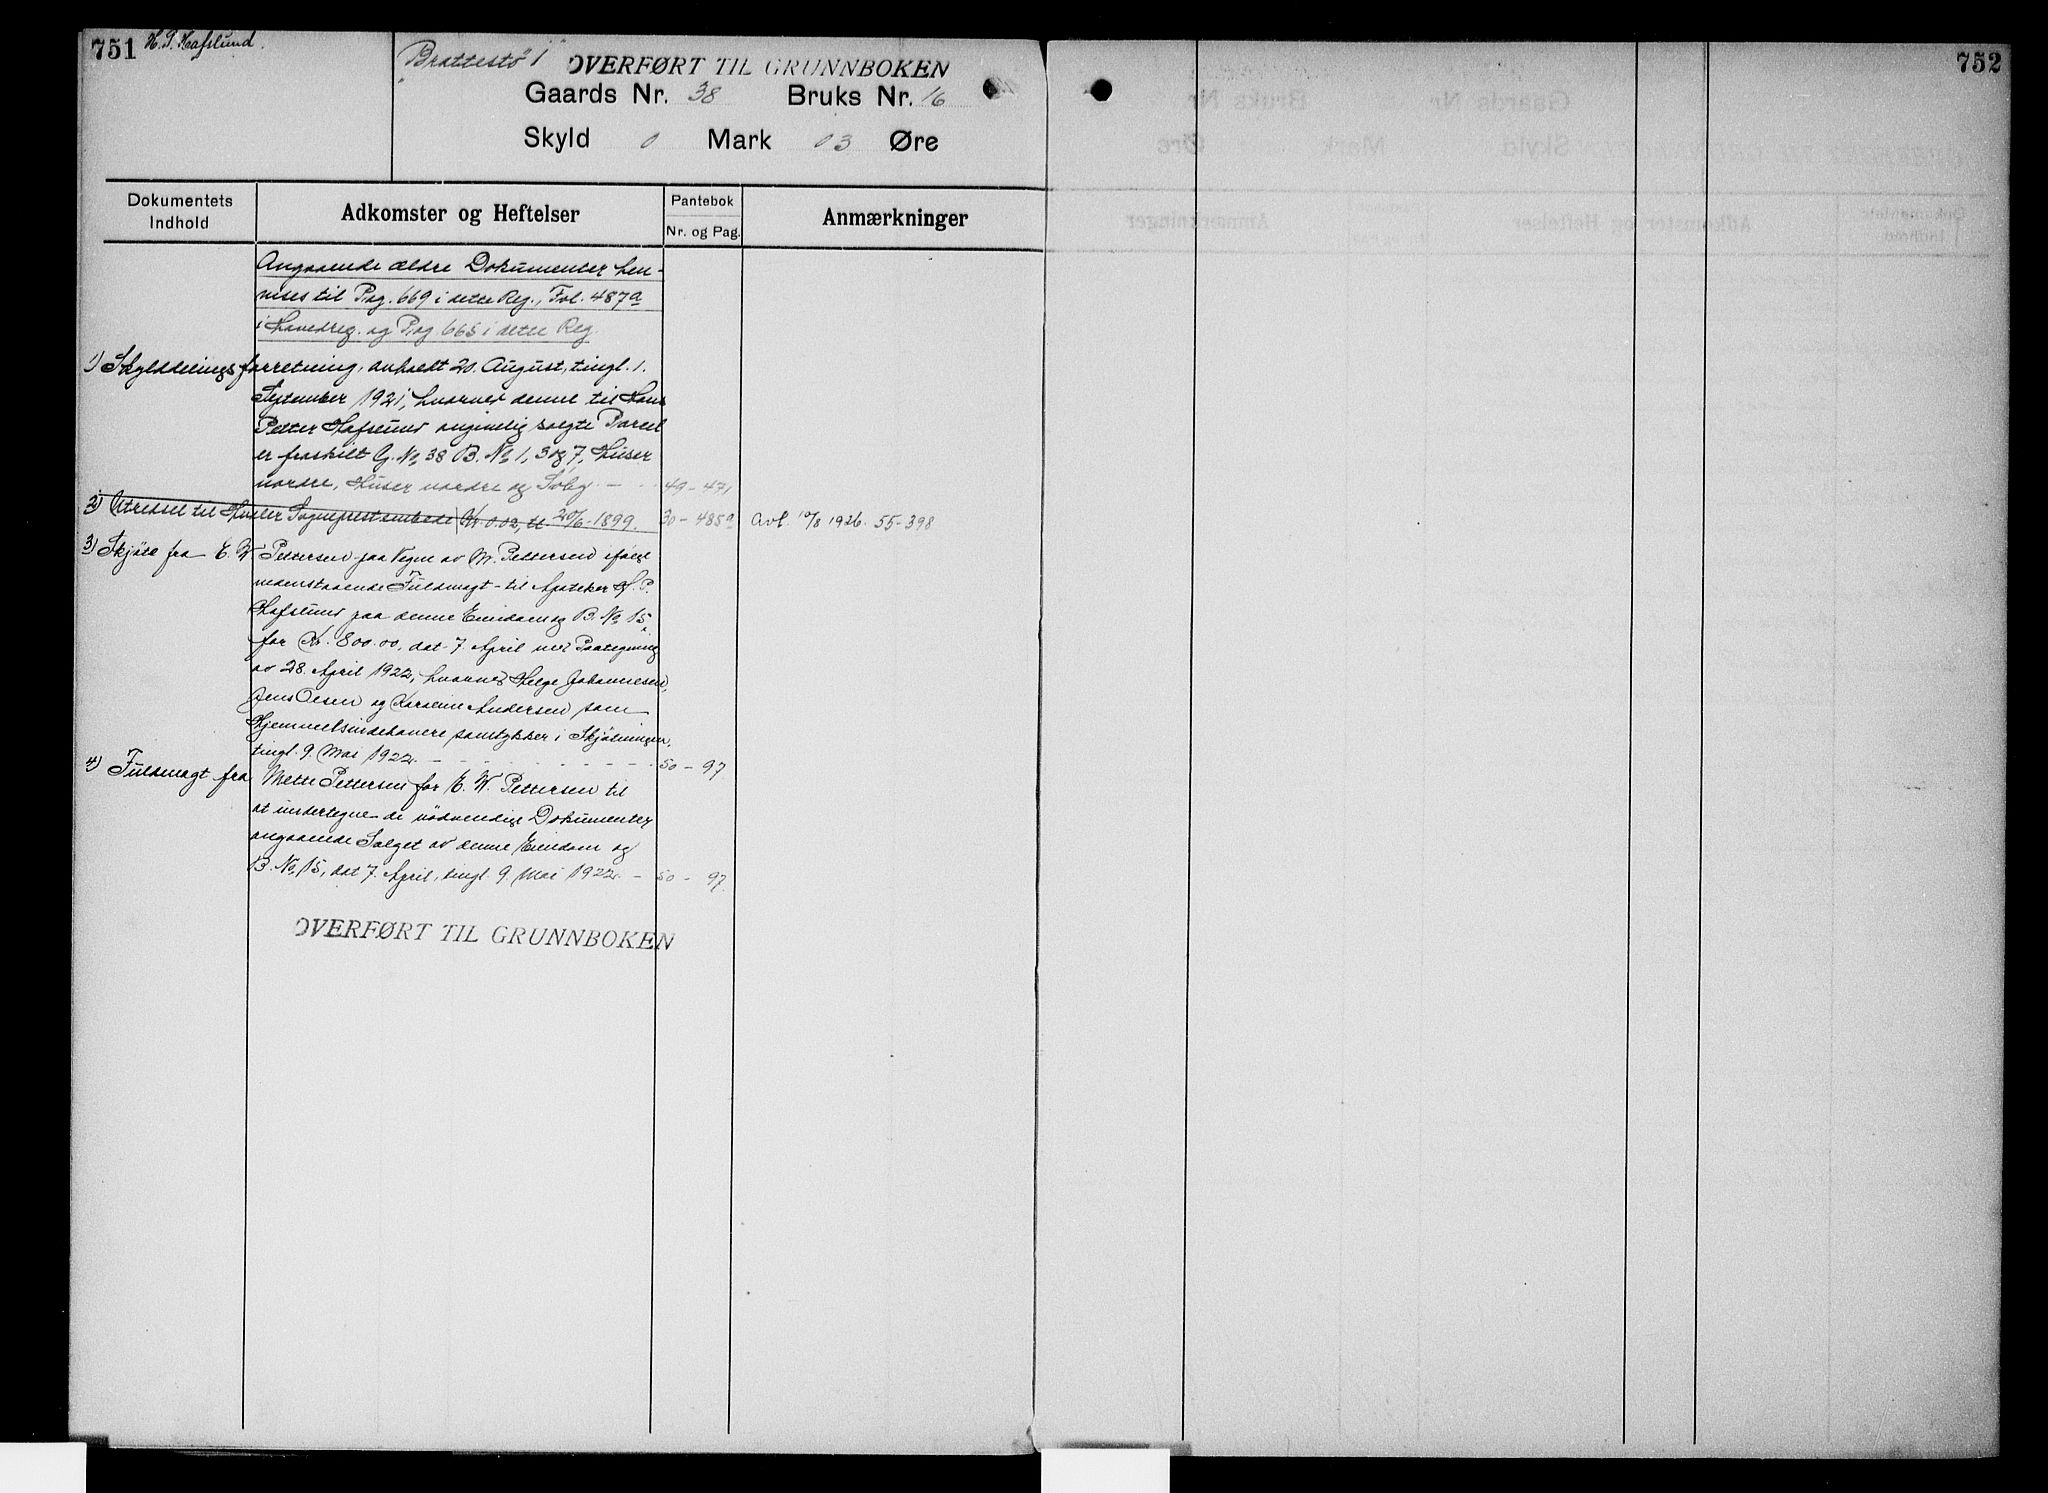 751 H. P. Hafslund.
752
"Brattestø 1"
OVERFØRT TIL GRUNNBOKEN
Gaards Nr. 38 Bruks Nr. 16
Skyld 0 Mark 03 Øre
Dokumentets Indhold
Adkomster og Heftelser
Pantebok
Nr. og Pag.
Anmærkninger
Angaaende ældre Dokumenter hen-
vises til Pag. 669 i dette Reg., Fol. 487a
i Hovedreg. og Pag. 665 i dette Reg.
1) Skylddelingsforretning, avholdt 20. August, tingl. 1.
September 1921, hvorved denne til Hans
Petter Hafslund angivelig solgte Parcel
er fraskilt G. No 38 B. No 1, 3 og 7, Huser
nordre, Huser nordre og Søby. - - 49 - 471
2) Utredsel til Hvaler Sogneprestembede Kr. 0.02, tl. 20/6-1899. 30 - 485a Avl. 10/8 1926. 55-398
3) Skjøte fra E. W. Pettersen paa Vegne av M. Pettersen ifølge
nedenstaaende Fuldmagt - til Apoteker H. P.
Hafslund paa denne Eiendom og B. No 15
for Kr. 800.00, dat. 7. April med Paategning
av 28. April 1922, hvorved Helge Johannesen,
Jens Olsen og Karoline Andersen som
Hjemmelsindehavere samtykker i Skjøtningen,
tingl. 9. Mai 1922. - - - - - - 50 - 97
4) Fuldmagt fra Mette Pettersen for E. W. Pettersen til
at undertegne de nødvendige Dokumenter
angaaende Salget av denne Eiendom og
B. No 15, dat. 7. April, tingl. 9. Mai 1922. - 50 - 97.
OVERFØRT TIL GRUNNBOKEN